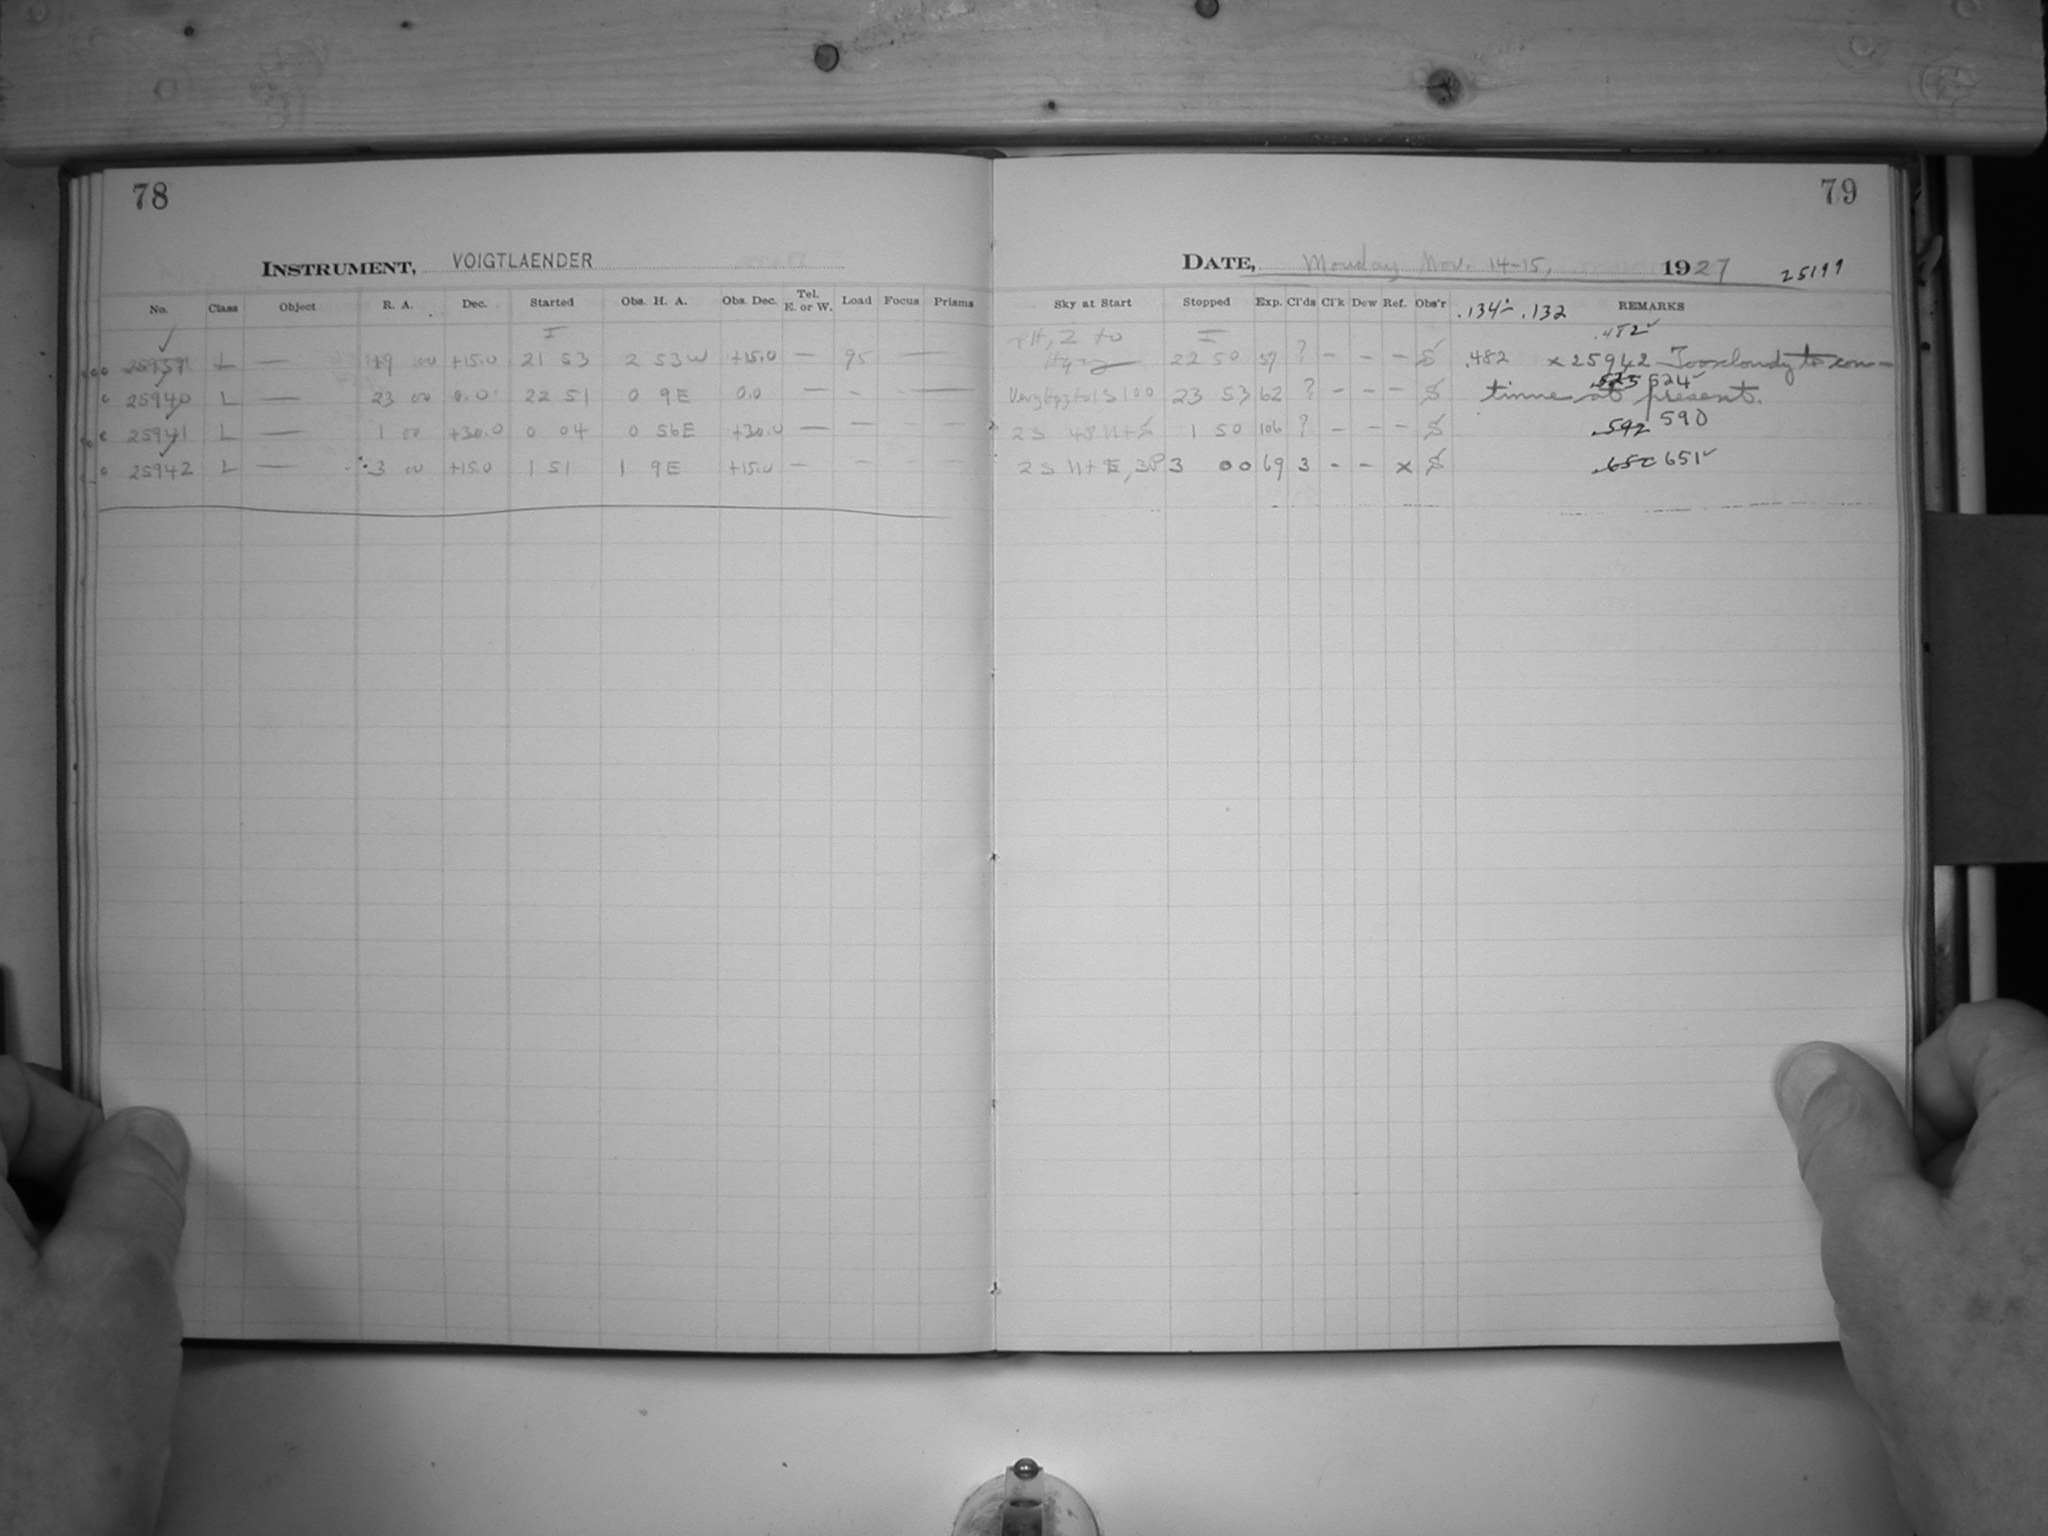 78
79
INSTRUMENT, VOIGTLAENDER
DATE, Monday Nov. 14-15, 1927
25199
No. Class Object R. A. Dec. Started Obs. H. A. Obs. Dec. Tel. E. or W. Load Focus Prisms
Sky at Start Stopped Exp. Cl'ds Cl'k Dew Ref. Obs'r .134 - .132 REMARKS
I I .482
25939 L — 19 00 +15.0 21 53 2 53W +15.0 — 95 —
Hazy 22 50 57 ? - - - S .482 x 25942 Too cloudy to con-
25940 L — 23 00 0.0 22 51 0 9E 0.0 — - —
23 53 62 ? - - - S tinue at present.
.525 524
25941 L — 1 00 +30.0 0 04 0 56E +30.0 — — - —
2S 1 50 106 ? - - - S .592 590
25942 L — 3 00 +15.0 1 51 1 9E +15.0 — — - —
2S N+E, 3P 3 00 69 3 - - x S .652 651